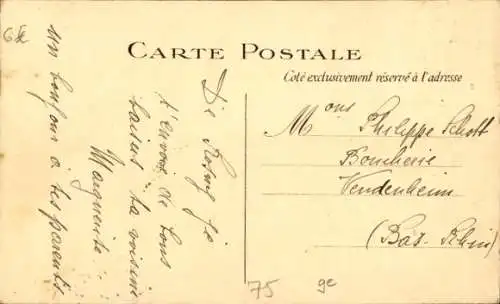 CARTE POSTALE
Coté exclusivement réservé à l'adresse
De Rosny je
t'envoie de bons
baisers. ta voisine
Marguerite.
Un bonjour à tes parents
Mons Philippe Schott
Boucherie
Vendenheim
(Bas-Rhin)
75 9e